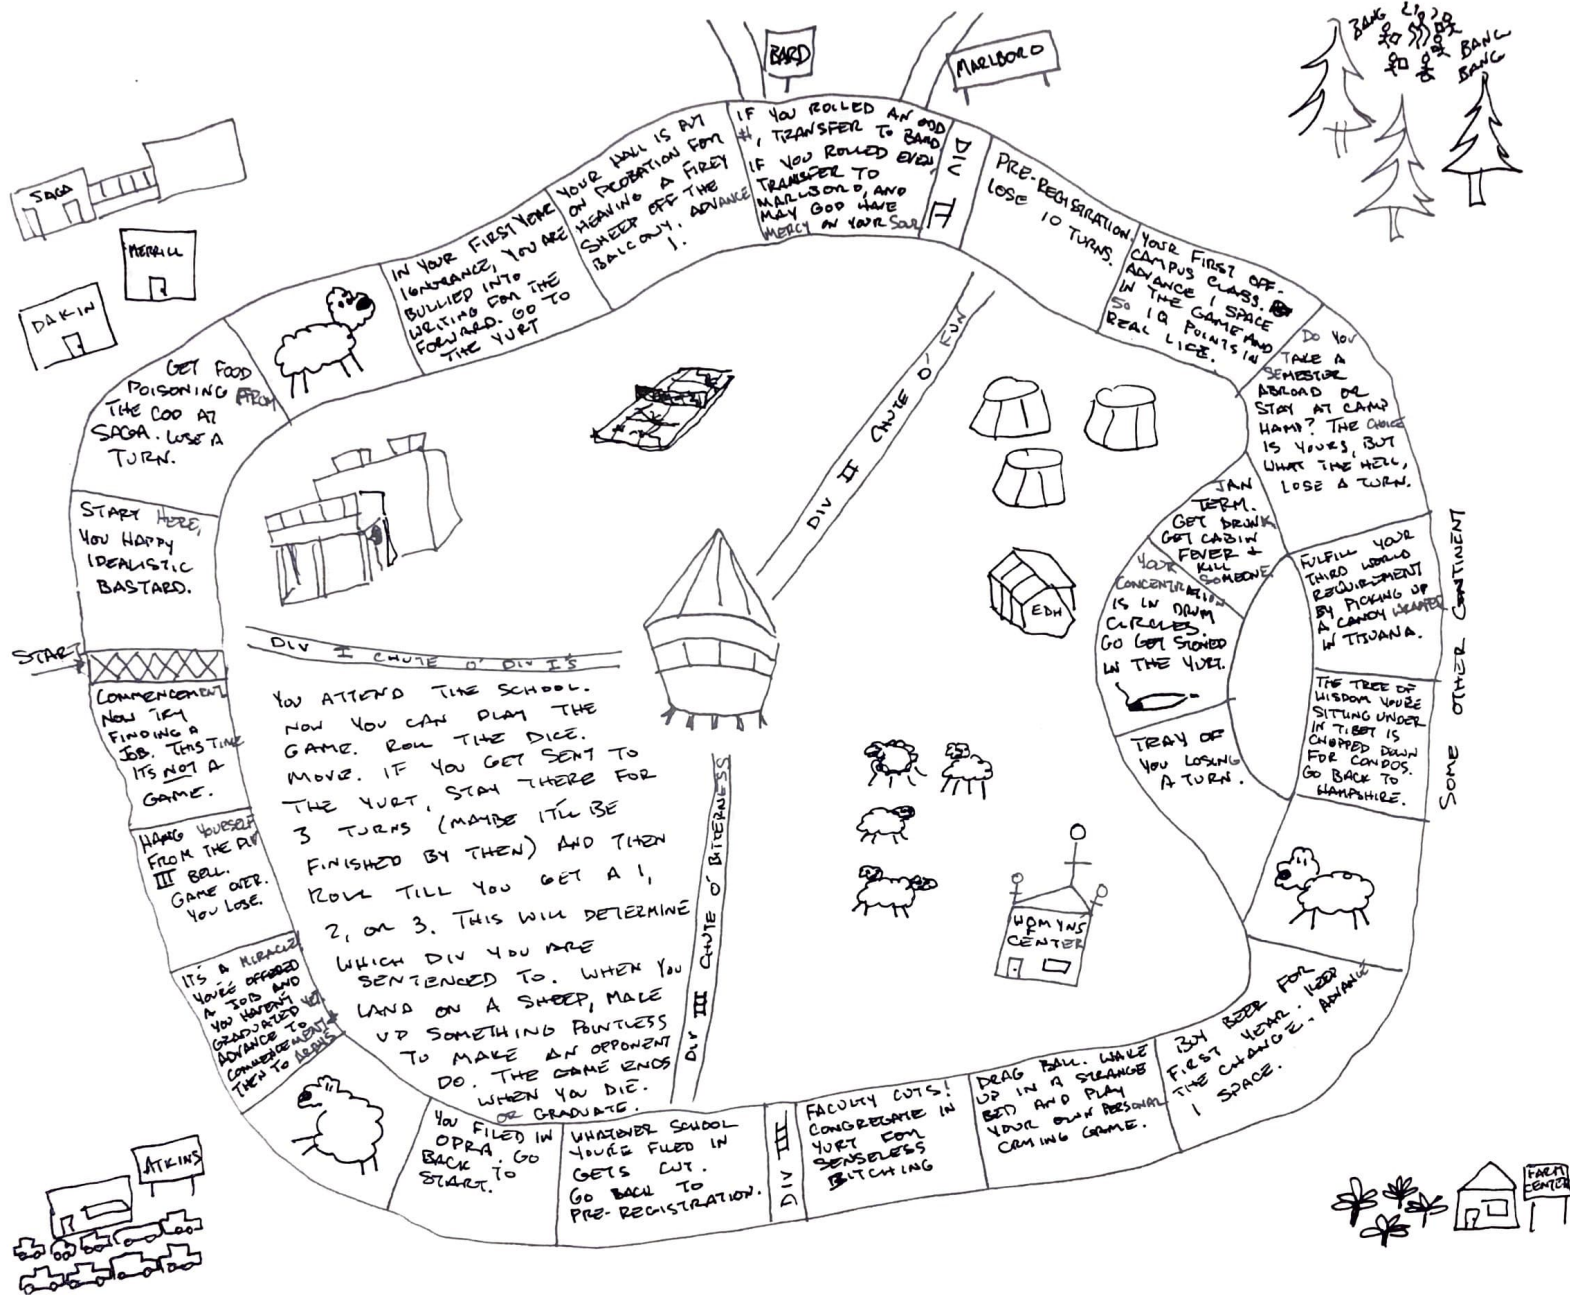 BARD
MARLBORO
BANG
BANG
BANG
SAGA
MERRILL
DAKIN
START
START HERE,
YOU HAPPY
IDEALISTIC
BASTARD.
GET FOOD
POISONING FROM
THE COD AT
SAGA. LOSE A
TURN.
IN YOUR FIRST YEAR
IGNORANCE, YOU ARE
BULLIED INTO
WRITING FOR THE
FORWARD. GO TO
THE YURT
YOUR HALL IS PUT
ON PROBATION FOR
HEAVING A FIREY
SHEEP OFF THE
BALCONY. ADVANCE
1.
IF YOU ROLLED AN ODD
#, TRANSFER TO BARD
IF YOU ROLLED EVEN,
TRANSFER TO
MARLBORO, AND
MAY GOD HAVE
MERCY ON YOUR SOUL
DIV II
PRE-REGISTRATION.
LOSE 10 TURNS.
YOUR FIRST OFF-
CAMPUS CLASS.
ADVANCE 1 SPACE
IN THE GAME AND
50 IQ POINTS IN
REAL LIFE.
DO YOU
TAKE A
SEMESTER
ABROAD OR
STAY AT CAMP
HAMP? THE CHOICE
IS YOURS, BUT
WHAT THE HELL,
LOSE A TURN.
JAN
TERM.
GET DRUNK
GET CABIN
FEVER &
KILL
SOMEONE.
YOUR
CONCENTRATION
IS IN DRUM
CIRCLES.
GO GET STONED
IN THE YURT.
TRAY OF
YOU LOSING
A TURN.
FULFILL YOUR
THIRD WORLD
REQUIREMENT
BY PICKING UP
A CANDY WRAPPER
IN TIJUANA.
THE TREE OF
WISDOM YOU'RE
SITTING UNDER
IN TIBET IS
CHOPPED DOWN
FOR CONDOS.
GO BACK TO
HAMPSHIRE.
SOME OTHER CONTINENT
BUY BEER FOR
FIRST YEAR. KEEP
THE CHANGE. ADVANCE
1 SPACE.
DRAG BALL. WAKE
UP IN A STRANGE
BED AND PLAY
YOUR OWN PERSONAL
CRYING GAME.
FACULTY CUTS!
CONGREGATE IN
YURT FOR
SENSELESS
BITCHING
DIV III
WHATEVER SCHOOL
YOU'RE FILED IN
GETS CUT.
GO BACK TO
PRE-REGISTRATION.
YOU FILED IN
OPRA. GO
BACK TO
START.
IT'S A MIRACLE
YOU'RE OFFERED
A JOB AND
YOU HAVEN'T
GRADUATED YET
ADVANCE TO
COMMENCEMENT
THEN TO ARBYS
HANG YOURSELF
FROM THE DIV
III BELL.
GAME OVER.
YOU LOSE.
COMMENCEMENT
NOW TRY
FINDING A
JOB. THIS TIME
ITS NOT A
GAME.
DIV I CHUTE O' DIV I'S
DIV II CHUTE O' FUN
DIV III CHUTE O' BITTERNESS
YOU ATTEND THE SCHOOL.
NOW YOU CAN PLAY THE
GAME. ROLL THE DICE.
MOVE. IF YOU GET SENT TO
THE YURT, STAY THERE FOR
3 TURNS (MAYBE IT'LL BE
FINISHED BY THEN) AND THEN
ROLL TILL YOU GET A 1,
2, OR 3. THIS WILL DETERMINE
WHICH DIV YOU ARE
SENTENCED TO. WHEN YOU
LAND ON A SHEEP, MAKE
UP SOMETHING POINTLESS
TO MAKE AN OPPONENT
DO. THE GAME ENDS
WHEN YOU DIE.
OR GRADUATE.
EDH
WOMYN'S
CENTER
ATKINS
FARM
CENTER